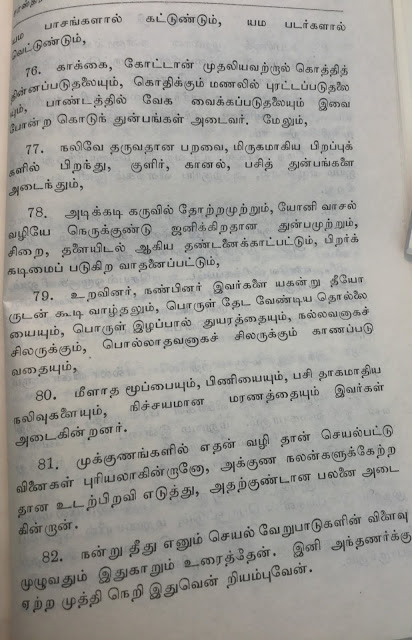 யம பாசங்களால் கட்டுண்டும், யம படர்களால்
வெட்டுண்டும்,
76. காக்கை, கோட்டான் முதலியவற்றால் கொத்தித்
தின்னப்படுதலையும், கொதிக்கும் மணலில் புரட்டப்படுதலை
யும், பாண்டத்தில் வேக வைக்கப்படுதலையும் இவை
போன்ற கொடுந் துன்பங்கள் அடைவர். மேலும்,
77. நலிவே தருவதான பறவை, மிருகமாகிய பிறப்புக்
களில் பிறந்து, குளிர், கானல், பசித் துன்பங்களை
அடைந்தும்,
78. அடிக்கடி கருவில் தோற்றமுற்றும், யோனி வாசல்
வழியே நெருக்குண்டு ஜனிக்கிறதான துன்பமுற்றும்,
சிறை, தளையிடல் ஆகிய தண்டனைக்காட்பட்டும், பிறர்க்
கடிமைப் படுகிற வாதனைப்பட்டும்,
79. உறவினர், நண்பினர் இவர்களை யகன்று தீயோ
ருடன் கூடி வாழ்தலும், பொருள் தேட வேண்டிய தொல்லை
யையும், பொருள் இழப்பால் துயரத்தையும், நல்லவனாகச்
சிலருக்கும், பொல்லாதவனாகச் சிலருக்கும் காணப்படு
வதையும்,
80. மீளாத மூப்பையும், பிணியையும், பசி தாகமாதிய
நலிவுகளையும், நிச்சயமான மரணத்தையும் இவர்கள்
அடைகின்றனர்.
81. முக்குணங்களில் எதன் வழி தான் செயல்பட்டு
வினைகள் புரியலாகின்றானோ, அக்குண நலன்களுக்கேற்ற
தான உடற்பிறவி எடுத்து, அதற்குண்டான பலனை அடை
கின்றான்.
82. நன்று தீது எனும் செயல் வேறுபாடுகளின் விளைவு
முழுவதும் இதுகாறும் உரைத்தேன். இனி அந்தணர்க்கு
ஏற்ற முத்தி நெறி இதுவென் றியம்புவேன்.